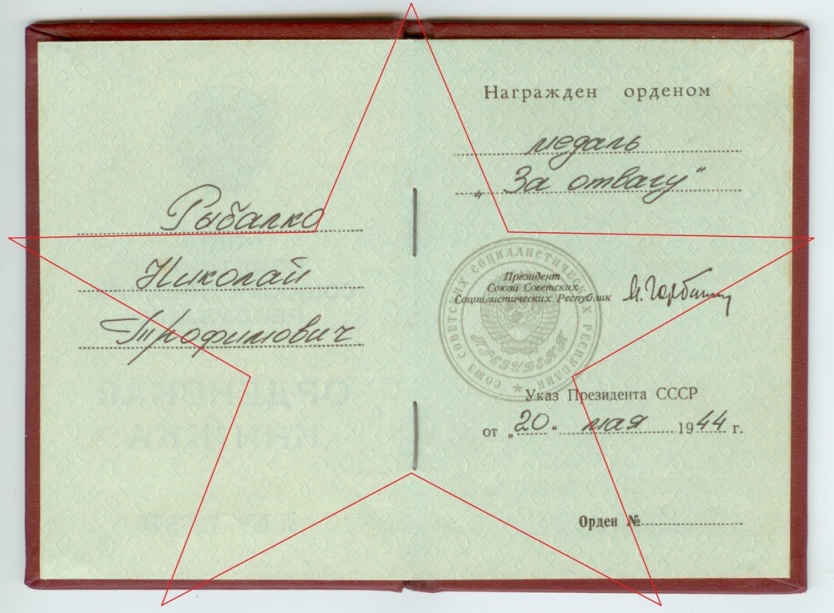 Рыбалко
Николай
Трофимович
Награжден орденом
медаль
„За отвагу"
СОЮЗ СОВЕТСКИХ СОЦИАЛИСТИЧЕСКИХ РЕСПУБЛИК
ПРЕЗИДЕНТ
Президент
Союза Советских
Социалистических Республик
М. Горбачев
Указ Президента СССР
от „20" мая 1944 г.
Орден №